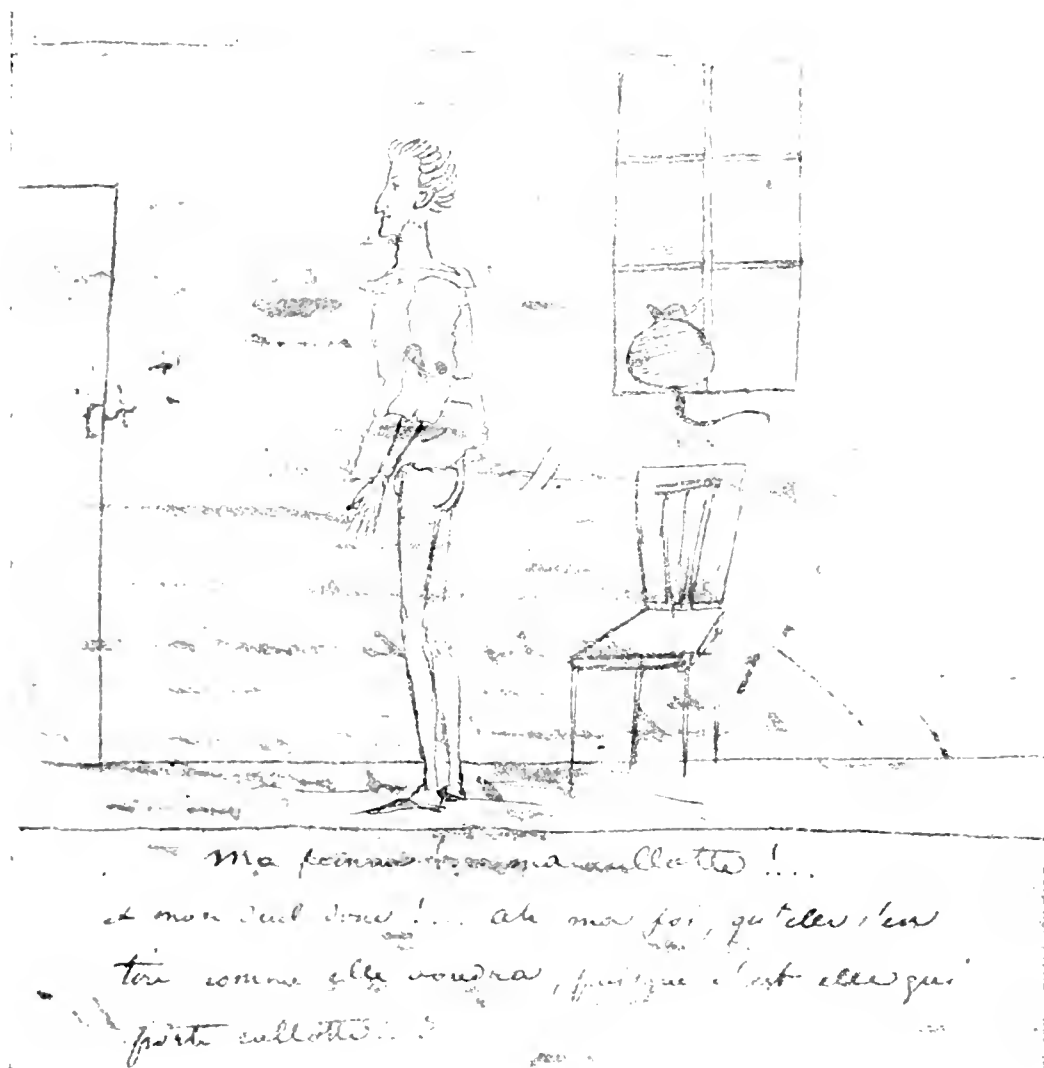 Ma femme ! ... ma cullotte !...
et mon duel donc !... ah ma foi, qu'elle s'en
tire comme elle voudra, puisque c'est elle qui
porte cullotte...